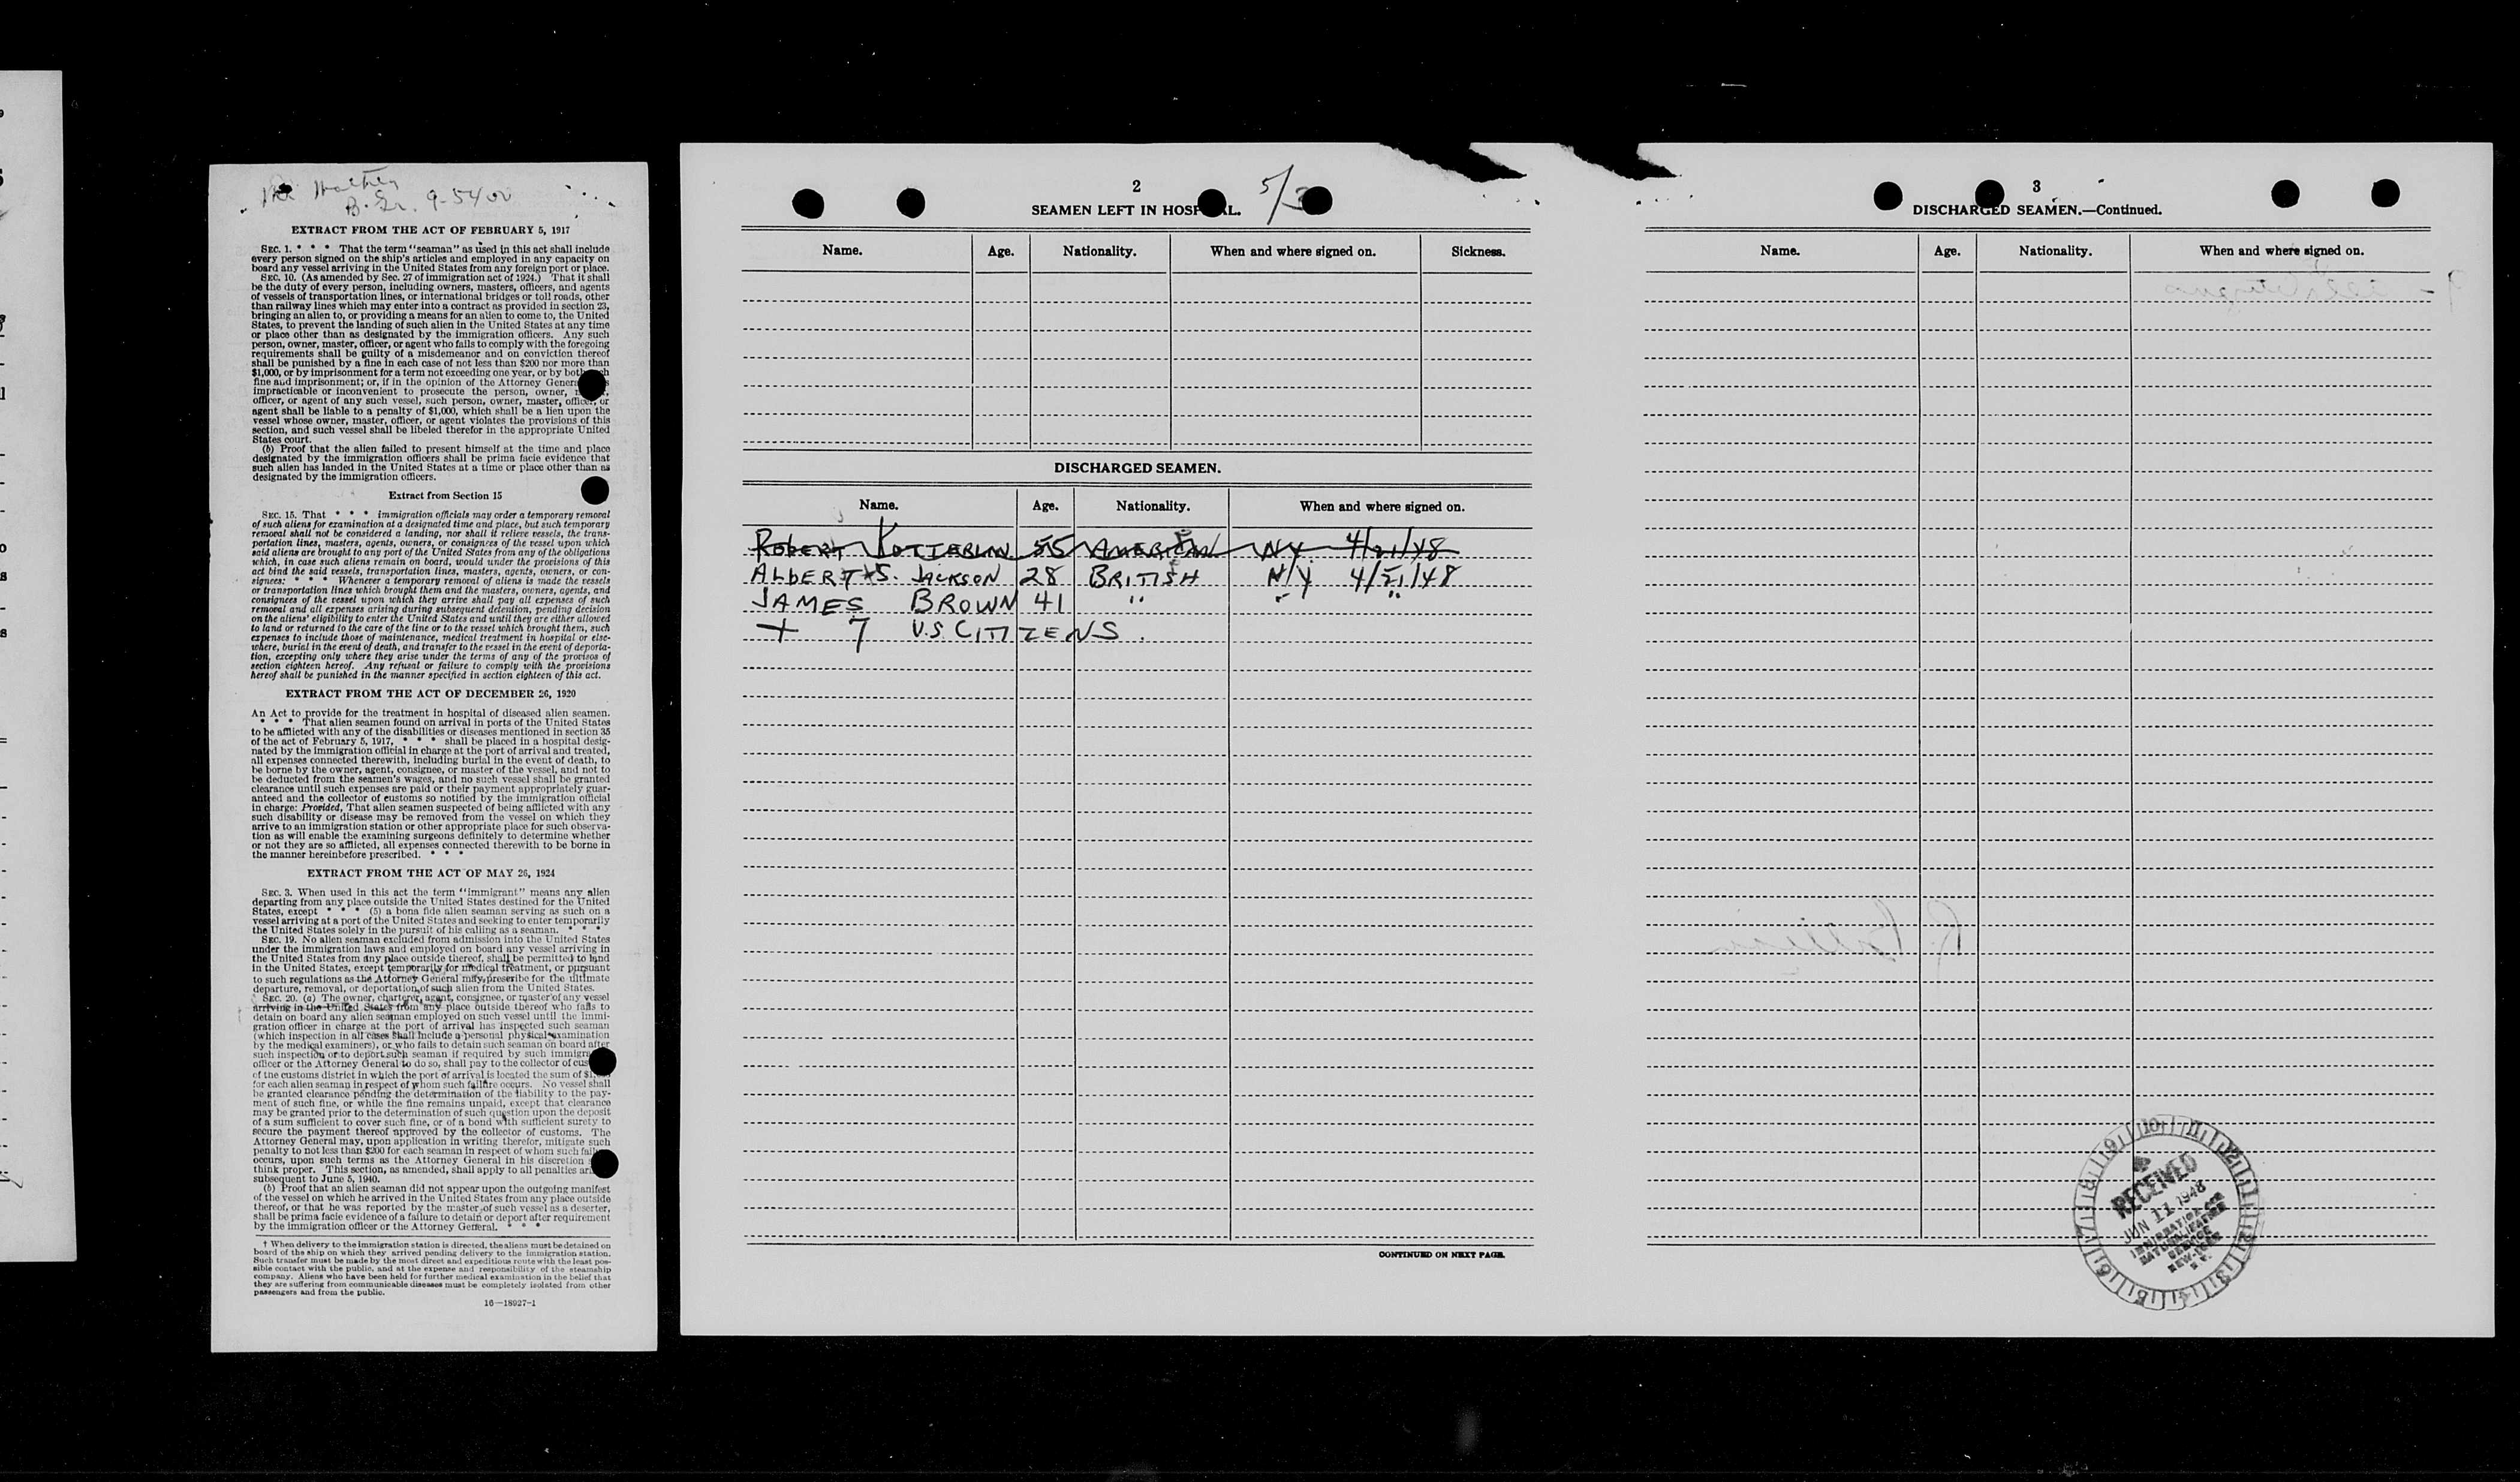 B. Gr. 9-5400
EXTRACT FROM THE ACT OF FEBRUARY 5, 1917
SEC. 1. * * * That the term "seaman" as used in this act shall include
every person signed on the ship's articles and employed in any capacity on
board any vessel arriving in the United States from any foreign port or place.
SEC. 10. (As amended by Sec. 27 of immigration act of 1924.) That it shall
be the duty of every person, including owners, masters, officers, and agents
of vessels of transportation lines, or international bridges or toll roads, other
than railway lines which may enter into a contract as provided in section 23,
bringing an alien to, or providing a means for an alien to come to, the United
States, to prevent the landing of such alien in the United States at any time
or place other than as designated by the immigration officers. Any such
person, owner, master, officer, or agent who fails to comply with the foregoing
requirements shall be guilty of a misdemeanor and on conviction thereof
shall be punished by a fine in each case of not less than $200 nor more than
$1,000, or by imprisonment for a term not exceeding one year, or by both
fine and imprisonment; or, if in the opinion of the Attorney General
impracticable or inconvenient to prosecute the person, owner,
officer, or agent of any such vessel, such person, owner, master, officer, or
agent shall be liable to a penalty of $1,000, which shall be a lien upon the
vessel whose owner, master, officer, or agent violates the provisions of this
section, and such vessel shall be libeled therefor in the appropriate United
States court.
(b) Proof that the alien failed to present himself at the time and place
designated by the immigration officers shall be prima facie evidence that
such alien has landed in the United States at a time or place other than as
designated by the immigration officers.
Extract from Section 15
SEC. 15. That * * * immigration officials may order a temporary removal
of such aliens for examination at a designated time and place, but such temporary
removal shall not be considered a landing, nor shall it relieve vessels, the trans-
portation lines, masters, agents, owners, or consignees of the vessel upon which
said aliens are brought to any port of the United States from any of the obligations
which, in case such aliens remain on board, would under the provisions of this
act bind the said vessels, transportation lines, masters, agents, owners, or con-
signees: * * * Whenever a temporary removal of aliens is made the vessels
or transportation lines which brought them and the masters, owners, agents, and
consignees of the vessel upon which they arrive shall pay all expenses of such
removal and all expenses arising during subsequent detention, pending decision
on the aliens' eligibility to enter the United States and until they are either allowed
to land or returned to the care of the line or to the vessel which brought them, such
expenses to include those of maintenance, medical treatment in hospital or else-
where, burial in the event of death, and transfer to the vessel in the event of deporta-
tion, excepting only where they arise under the terms of any of the provisos of
section eighteen hereof. Any refusal or failure to comply with the provisions
hereof shall be punished in the manner specified in section eighteen of this act.
EXTRACT FROM THE ACT OF DECEMBER 26, 1920
An Act to provide for the treatment in hospital of diseased alien seamen.
* * * That alien seamen found on arrival in ports of the United States
to be afflicted with any of the disabilities or diseases mentioned in section 35
of the act of February 5, 1917, * * * shall be placed in a hospital desig-
nated by the immigration official in charge at the port of arrival and treated,
all expenses connected therewith, including burial in the event of death, to
be borne by the owner, agent, consignee, or master of the vessel, and not to
be deducted from the seamen's wages, and no such vessel shall be granted
clearance until such expenses are paid or their payment appropriately guar-
anteed and the collector of customs so notified by the immigration official
in charge: Provided, That alien seamen suspected of being afflicted with any
such disability or disease may be removed from the vessel on which they
arrive to an immigration station or other appropriate place for such observa-
tion as will enable the examining surgeons definitely to determine whether
or not they are so afflicted, all expenses connected therewith to be borne in
the manner hereinbefore prescribed. * * *
EXTRACT FROM THE ACT OF MAY 26, 1924
SEC. 3. When used in this act the term "immigrant" means any alien
departing from any place outside the United States destined for the United
States, except * * * (5) a bona fide alien seaman serving as such on a
vessel arriving at a port of the United States and seeking to enter temporarily
the United States solely in the pursuit of his calling as a seaman. * * *
SEC. 19. No alien seaman excluded from admission into the United States
under the immigration laws and employed on board any vessel arriving in
the United States from any place outside thereof, shall be permitted to land
in the United States, except temporarily for medical treatment, or pursuant
to such regulations as the Attorney General may prescribe for the ultimate
departure, removal, or deportation of such alien from the United States.
SEC. 20. (a) The owner, charterer, agent, consignee, or master of any vessel
arriving in the United States from any place outside thereof who fails to
detain on board any alien seaman employed on such vessel until the immi-
gration officer in charge at the port of arrival has inspected such seaman
(which inspection in all cases shall include a personal physical examination
by the medical examiners), or who fails to detain such seaman on board after
such inspection or to deport such seaman if required by such
officer or the Attorney General to do so, shall pay to the collector of
of the customs district in which the port of arrival is located the sum of
for each alien seaman in respect of whom such failure occurs. No vessel shall
be granted clearance pending the determination of the liability to the pay-
ment of such fine, or while the fine remains unpaid, except that clearance
may be granted prior to the determination of such question upon the deposit
of a sum sufficient to cover such fine, or of a bond with sufficient surety to
secure the payment thereof approved by the collector of customs. The
Attorney General may, upon application in writing therefor, mitigate such
penalty to not less than $200 for each seaman in respect of whom such
occurs, upon such terms as the Attorney General in his discretion
think proper. This section, as amended, shall apply to all penalties
subsequent to June 5, 1940.
(b) Proof that an alien seaman did not appear upon the outgoing manifest
of the vessel on which he arrived in the United States from any place outside
thereof, or that he was reported by the master of such vessel as a deserter,
shall be prima facie evidence of a failure to detain or deport after requirement
by the immigration officer or the Attorney General. * * *
† When delivery to the immigration station is directed, the aliens must be detained on
board of the ship on which they arrived pending delivery to the immigration station.
Such transfer must be made by the most direct and expeditious route with the least pos-
sible contact with the public, and at the expense and responsibility of the steamship
company. Aliens who have been held for further medical examination in the belief that
they are suffering from communicable diseases must be completely isolated from other
passengers and from the public.
16—18927-1
2
5/3
SEAMEN LEFT IN HOSPITAL.
Name. Age. Nationality. When and where signed on. Sickness.
DISCHARGED SEAMEN.
Name. Age. Nationality. When and where signed on.
ROBERT 55 AMERICAN NY 4/21/48
ALBERT S. JACKSON 28 BRITISH N/Y 4/21/48
JAMES BROWN 41 " " "
+ 7 U.S. CITIZENS.
CONTINUED ON NEXT PAGE.
3
DISCHARGED SEAMEN.—Continued.
Name. Age. Nationality. When and where signed on.
RECEIVED
JUN 11 1948
IMMIGRATION AND
NATURALIZATION
SERVICE
NEW YORK
N. Y.